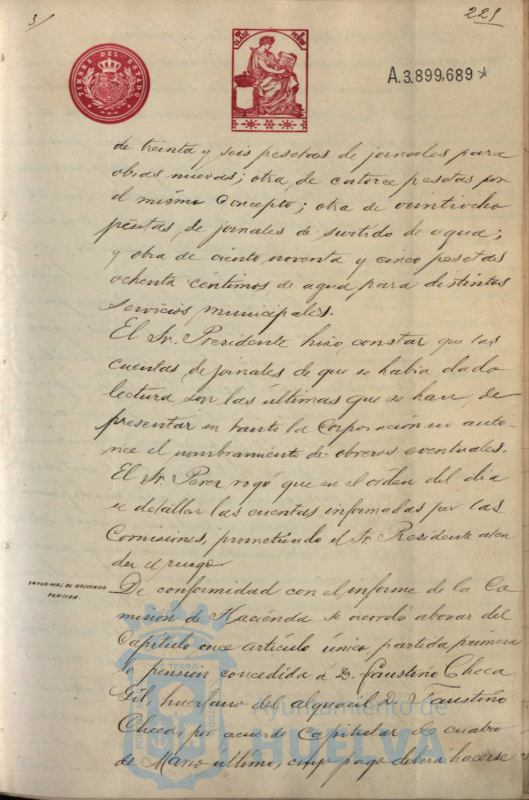 3/
221
TIMBRE DEL ESTADO
A.3.899.689
de treinta y seis pesetas de jornales para
obras nuevas; otra, de catorce pesetas por
el mismo concepto; otra de veintiocho
pesetas, de jornales de surtido de agua;
y otra de ciento noventa y cinco pesetas
ochenta céntimos de agua para distintos
servicios municipales.
El Sr. Presidente hizo constar que las
cuentas de jornales de que se había dado
lectura son las últimas que se han de
presentar en tanto la Corporación no auto-
rice el nombramiento de obreros eventuales.
El Sr. Perez rogó que en el orden del dia
se detallen las cuentas informadas por las
Comisiones, prometiendo el Sr. Presidente aten
der el ruego.
INFORMES DE HACIENDA
PENSION.
De conformidad con el informe de la Co
mision de Hacienda se acordó abonar del
Capítulo once artículo único partida primera
la pensión concedida á D. Faustino Checa
Gil, huerfano del alguacil D. Faustino
Checa, por acuerdo Capitular de cuatro
de Marzo último, cuyo pago deberá hacerse
Ayuntamiento de
HUELVA